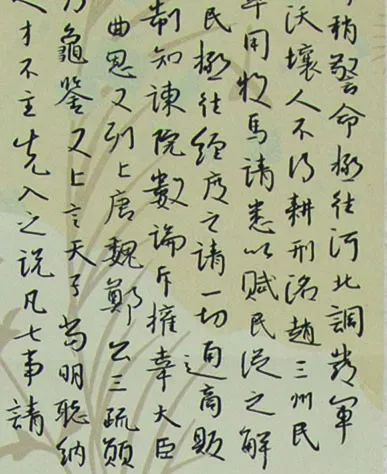 稍警命拯往河北調發軍
沃壤人不得耕刑洺趙三州民
率用牧馬請悉以賦民從之解
民拯往經度之請一切通商販
制知諫院數論斥權幸大臣
曲恩又列上唐魏鄭公三疏願
龜鑒又上言天子當明聽納
人才不主先入之說凡七事請